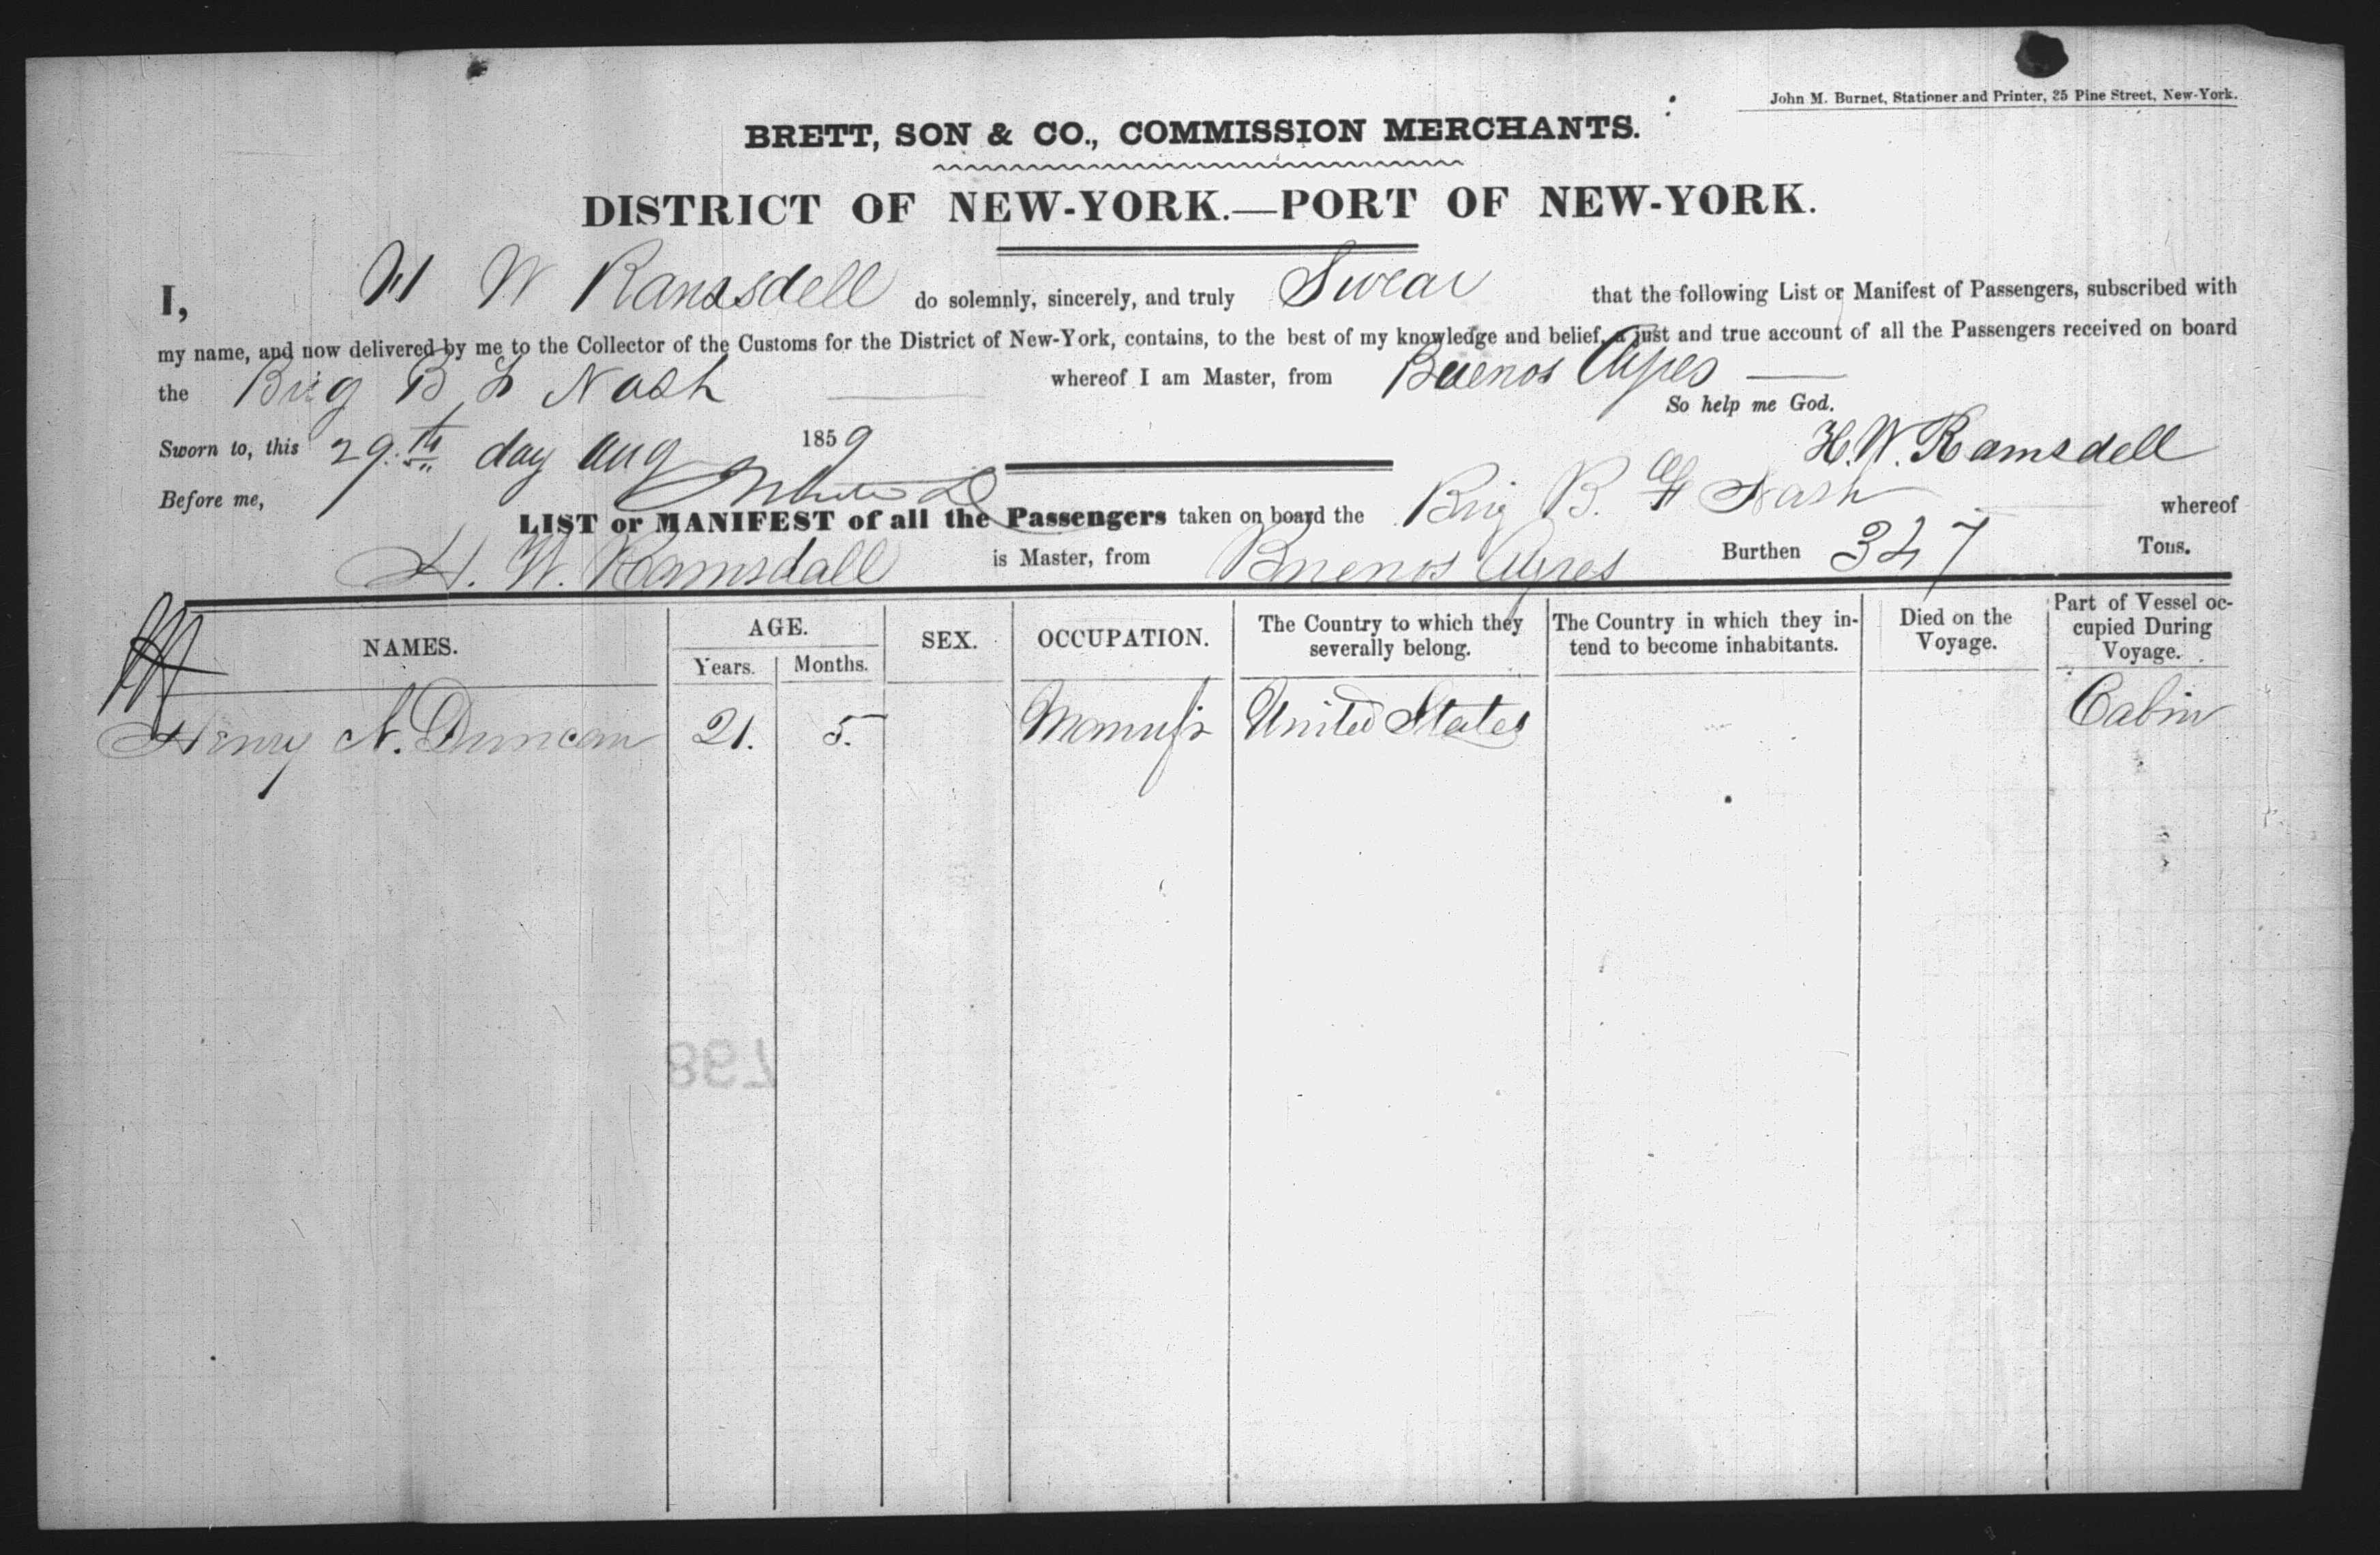 John M. Burnet, Stationer and Printer, 25 Pine Street, New-York.
BRETT, SON & CO., COMMISSION MERCHANTS.
DISTRICT OF NEW-YORK.—PORT OF NEW-YORK.
I, H W Ramsdell do solemnly, sincerely, and truly Swear that the following List or Manifest of Passengers, subscribed with
my name, and now delivered by me to the Collector of the Customs for the District of New-York, contains, to the best of my knowledge and belief, a just and true account of all the Passengers received on board
the Brig B Nash whereof I am Master, from Buenos Ayres
So help me God.
Sworn to, this 29th day Aug 1859 H. W. Ramsdell
Before me,
LIST or MANIFEST of all the Passengers taken on board the Brig B. Nash whereof
H. W. Ramsdall is Master, from Buenos Ayres Burthen 347 Tons.
NAMES. AGE. Years. Months. SEX. OCCUPATION. The Country to which they severally belong. The Country in which they intend to become inhabitants. Died on the Voyage. Part of Vessel occupied During Voyage.
Henry N. Duncan 21. 5. United States Cabin
867